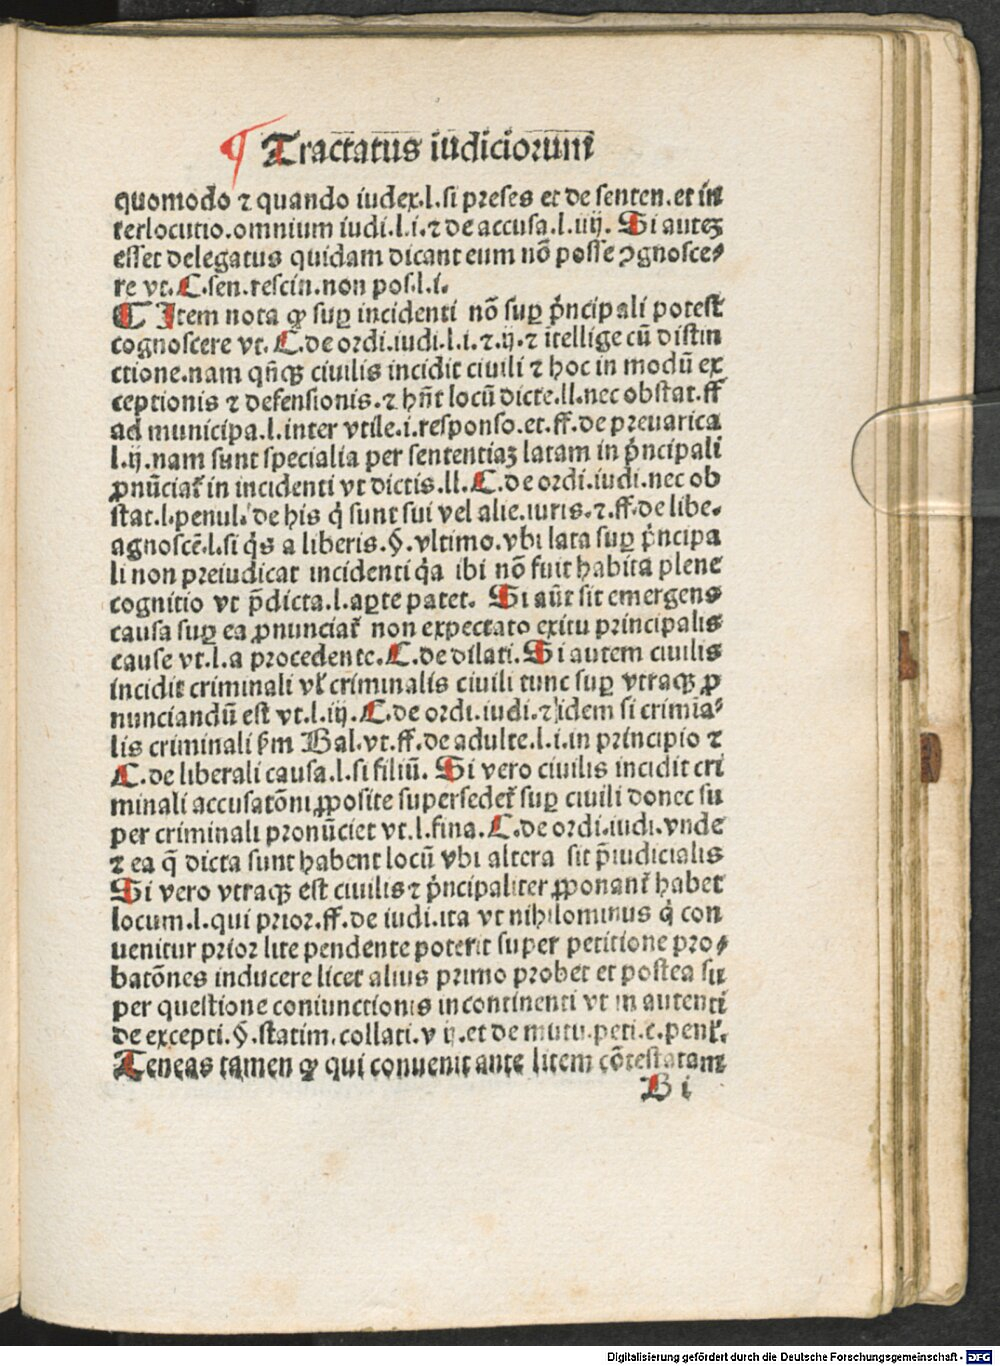 ¶ Tractatus iudiciorum
quomodo ⁊ quando iudex.l.si preses et de senten.et in
terlocutio.omnium iudi.l.i.⁊ de accusa.l.iiij. Si autez
esset delegatus quidam dicant eum nō posse ꝯgnosce⸗
re vt.C.sen.rescin.non pos.l.i.
¶ Item nota ꝙ suꝑ incidenti nō suꝑ pͥncipali potest
cognoscere vt. C.de ordi.iudi.l.i.⁊.ij.⁊ itellige cū distin
ctione.nam qn̄qꝫ ciuilis incidit ciuili ⁊ hoc in modū ex
ceptionis ⁊ defensionis.⁊ hn̄t locū dicte.ll.nec obstat.ff
ad municipa.l.inter vtile.i.responso.et.ff.de preuarica
l.ij.nam sunt specialia per sententiaꝫ latam in pͥncipali
ꝓnūciat᷑ in incidenti vt dictis.ll.C.de ordi.iudi.nec ob
stat.l.penul.de his qͥ sunt sui vel alie.iuris.⁊.ff.de libe.
agnoscē.l.si qͥs a liberis.§.vltimo.vbi lata suꝑ pͥncipa
li non preiudicat incidenti qͥa ibi nō fuit habita plene
cognitio vt p̄dicta.l.aꝑte patet. Si aūt sit emergens
causa suꝑ ea ꝓnunciat᷑ non expectato exitu principalis
cause vt.l.a procedente.C.de dilati.Si autem ciuilis
incidit criminali vl᷑ criminalis ciuili tunc suꝑ vtraqꝫ ꝓ
nunciandū est vt.l.iij.C.de ordi.iudi.⁊ idem si crimia⸗
lis criminali ẜm Bal.vt.ff.de adulte.l.i.in principio ⁊
C.de liberali causa.l.si filiū. Si vero ciuilis incidit cri
minali accusatōni ꝓposite supersedet᷑ suꝑ ciuili donec su
per criminali pronūciet vt.l.fina.C.de ordi.iudi.vnde
⁊ ea q̄ dicta sunt habent locū vbi altera sit p̄iudicialis
Si vero vtraqꝫ est ciuilis ⁊ pͥncipaliter ꝓponant᷑ habet
locum.l.qui prior.ff.de iudi.ita vt nihilominus qͥ con
uenitur prior lite pendente poterit super petitione pro⸗
batōnes inducere licet alius primo probet et postea su
per questione coniunctionis incontinenti vt in autenti
de excepti.§.statim.collati.v ij.et de mutu.peti.c.penl᷑.
Teneas tamen ꝙ qui conuenit ante litem cōtestatam
B i
Digitalisierung gefördert durch die Deutsche Forschungsgemeinschaft - DFG